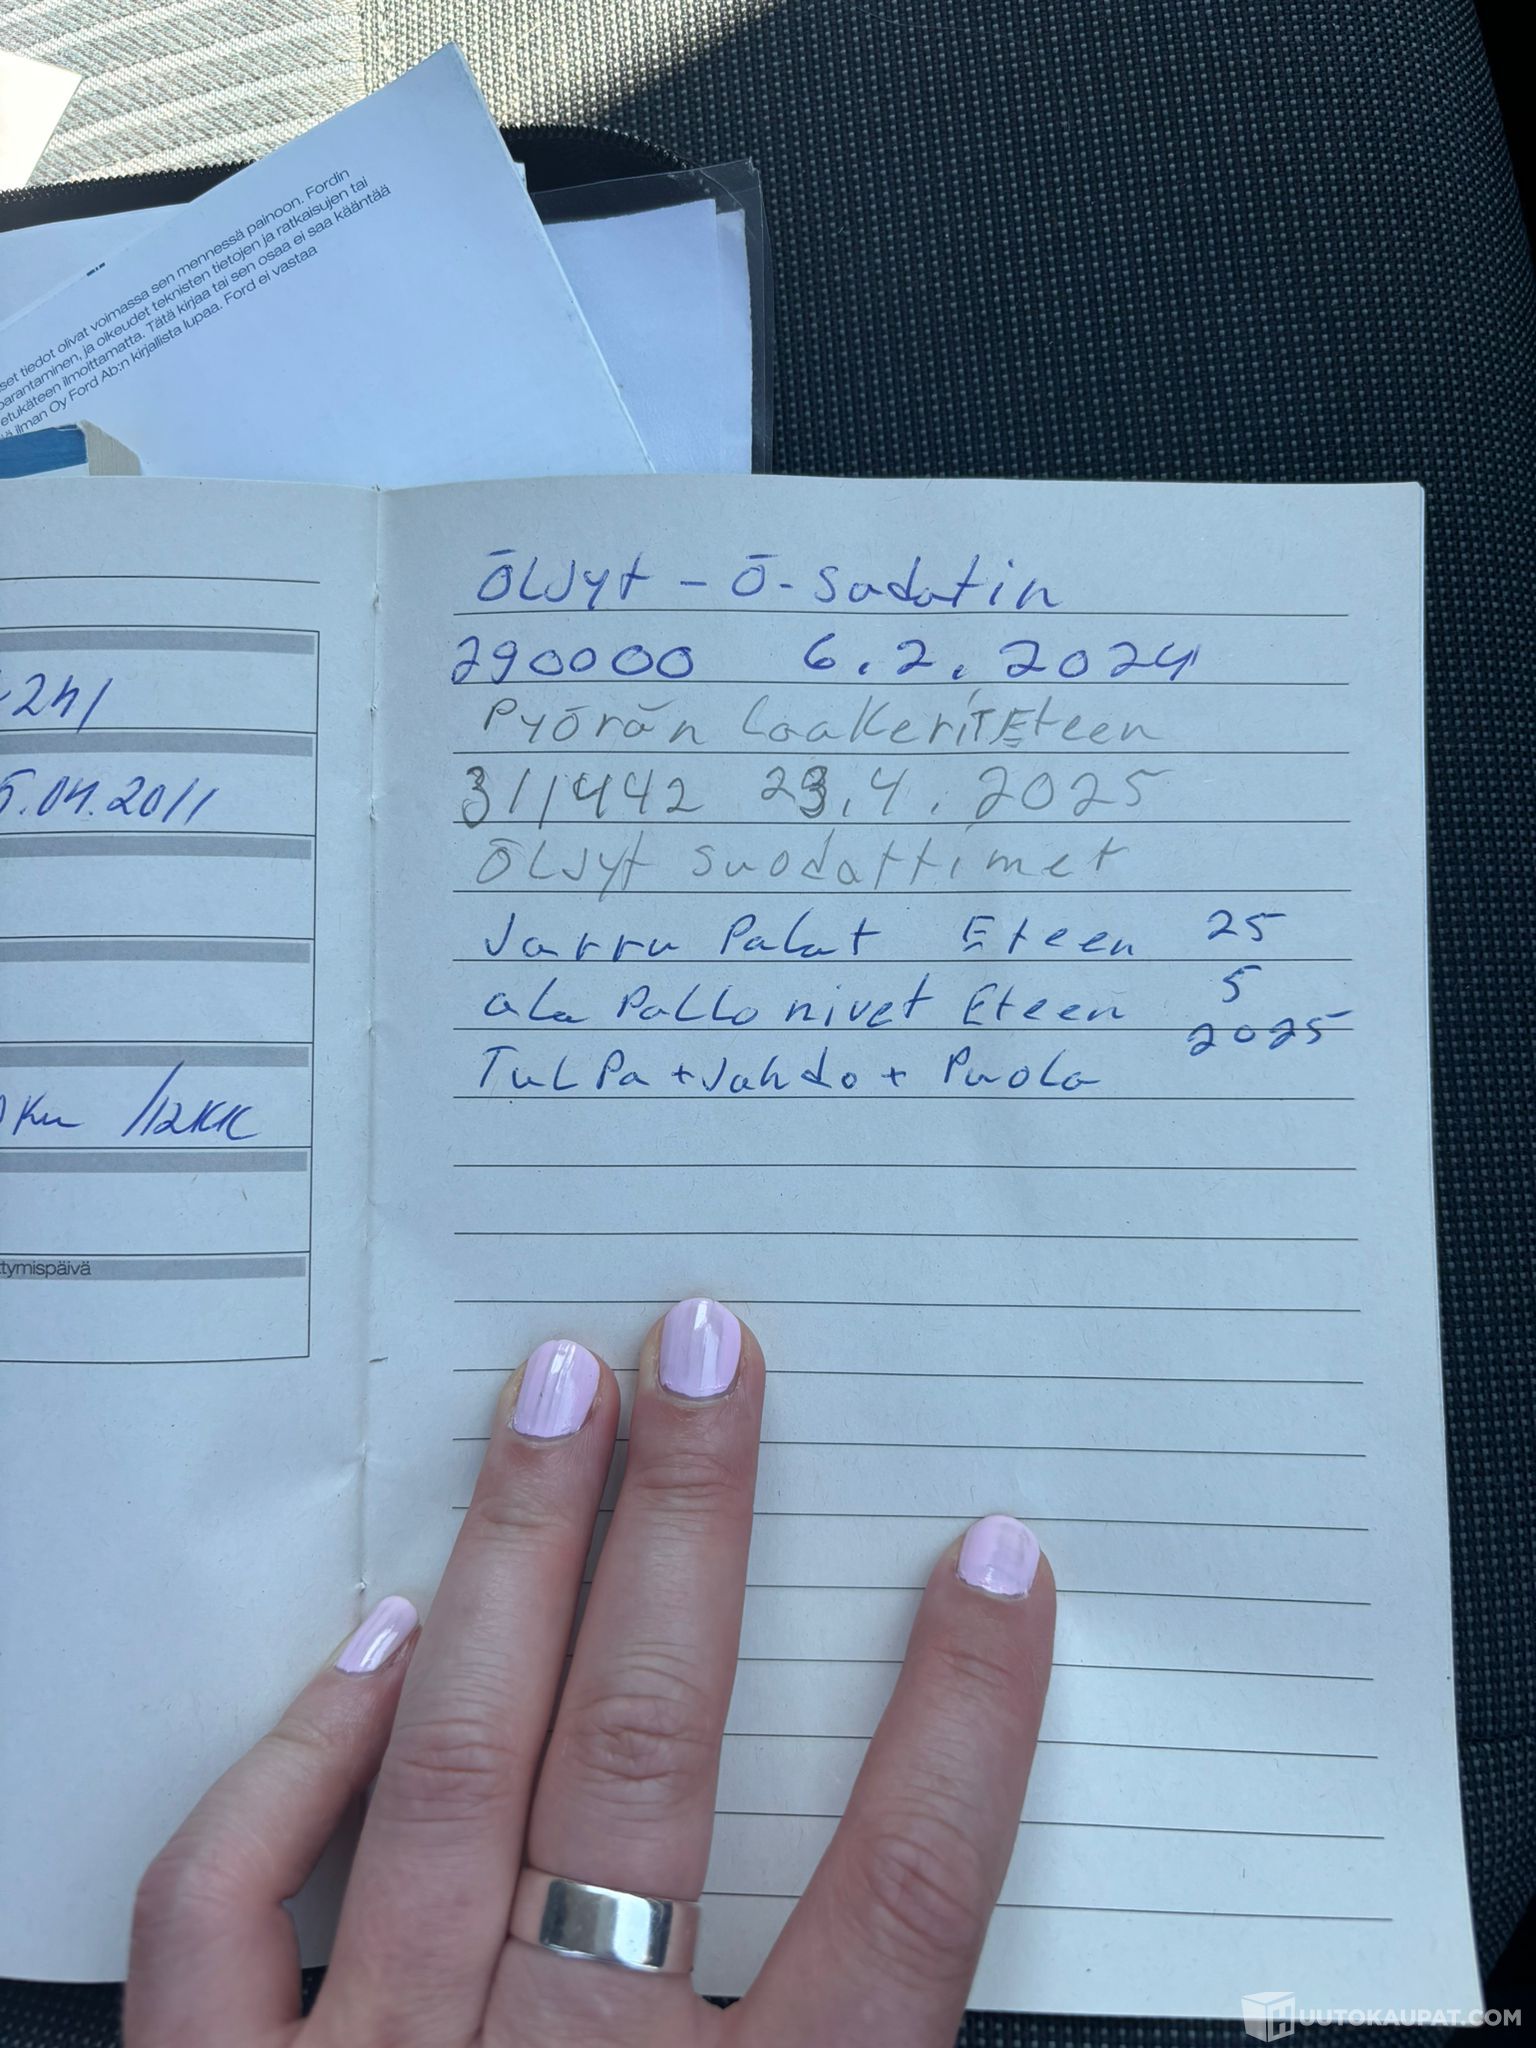 set tiedot olivat voimassa sen mennessä painoon. Fordin
parantaminen, ja oikeudet teknisten tietojen ja ratkaisujen tai
etukäteen ilmoittamatta. Tätä kirjaa tai sen osaa ei saa kääntää
ilman Oy Ford Ab:n kirjallista lupaa. Ford ei vastaa
241
5.04.2011
/12KK
tymispäivä
ÖLJyt - Ö-Sudatin
290000 6.2.2024
Pyörän LaakeriTEteen
311442 23.4.2025
ÖLJyt suodattimet
Jarru Palat Eteen 25
ala Pallo nivet Eteen 5
2025
TulPa+Johdo+Puola
HUUTOKAUPAT.COM